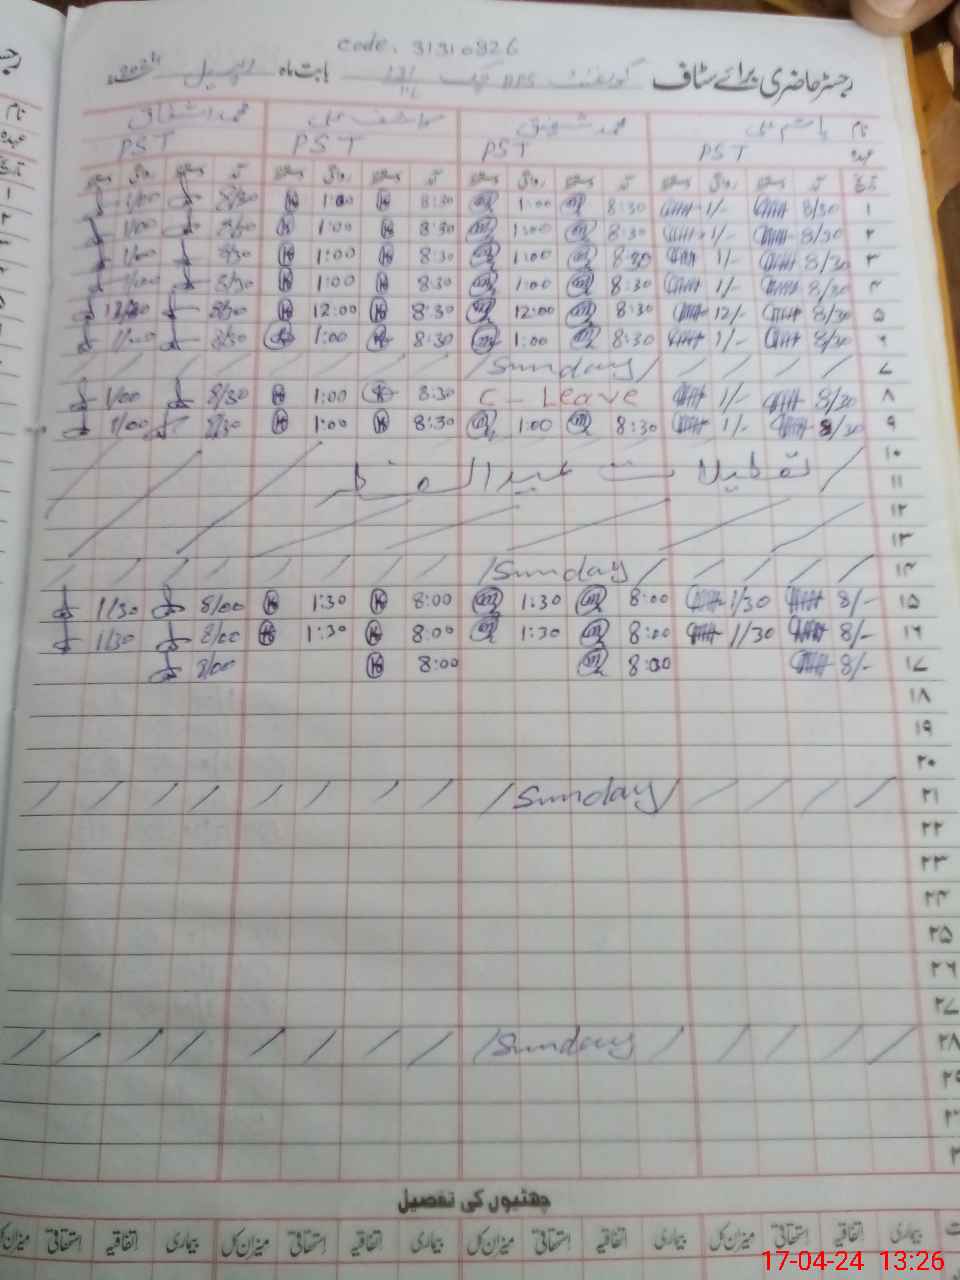 code. 31310826
رجسٹر حاضری برائے سٹاف گورنمنٹ پرائمری سکول چک بابت ماہ اپریل 2024ء
نام ہاشم علی محمد شفیق محمد اشفاق
عہدہ PST PST PST PST
تاریخ آمد دستخط روانگی دستخط آمد دستخط روانگی دستخط آمد دستخط روانگی دستخط آمد دستخط روانگی دستخط
۱ 8/30 1/- 8:30 1:00 8:30 1:00 8/30 1/00
۲ 8/30 1/- 8:30 1:00 8:30 1:00 8/30 1/00
۳ 8/30 1/- 8:30 1:00 8:30 1:00 8/30 1/00
۴ 8/30 1/- 8:30 1:00 8:30 1:00 8/30 1/00
۵ 8/30 12/- 8:30 12:00 8:30 12:00 8/30
۶ 8/30 1/- 8:30 1:00 8:30 1:00 8/30 1/00
۷ Sunday
۸ 8/30 1/- C - Leave 8:30 1:00 8/30 1/00
۹ 8/30 1/- 8:30 1:00 8:30 1:00 8/30 1/00
۱۰
۱۱ تعطیلات عیدالفطر
۱۲
۱۳
۱۴ Sunday
۱۵ 8/- 1/30 8:00 1:30 8:00 1:30 8/00 1/30
۱۶ 8/- 1/30 8:00 1:30 8:00 1:30 8/00 1/30
۱۷ 8/- 8:00 8:00 8/00
۱۸
۱۹
۲۰
۲۱ Sunday
۲۲
۲۳
۲۴
۲۵
۲۶
۲۷
۲۸ Sunday
چھٹیوں کی تفصیل
بیماری اتفاقیہ استحقاقی میزان کل بیماری اتفاقیہ استحقاقی میزان کل بیماری اتفاقیہ استحقاقی میزان کل بیماری اتفاقیہ استحقاقی میزان کل
17-04-24 13:26